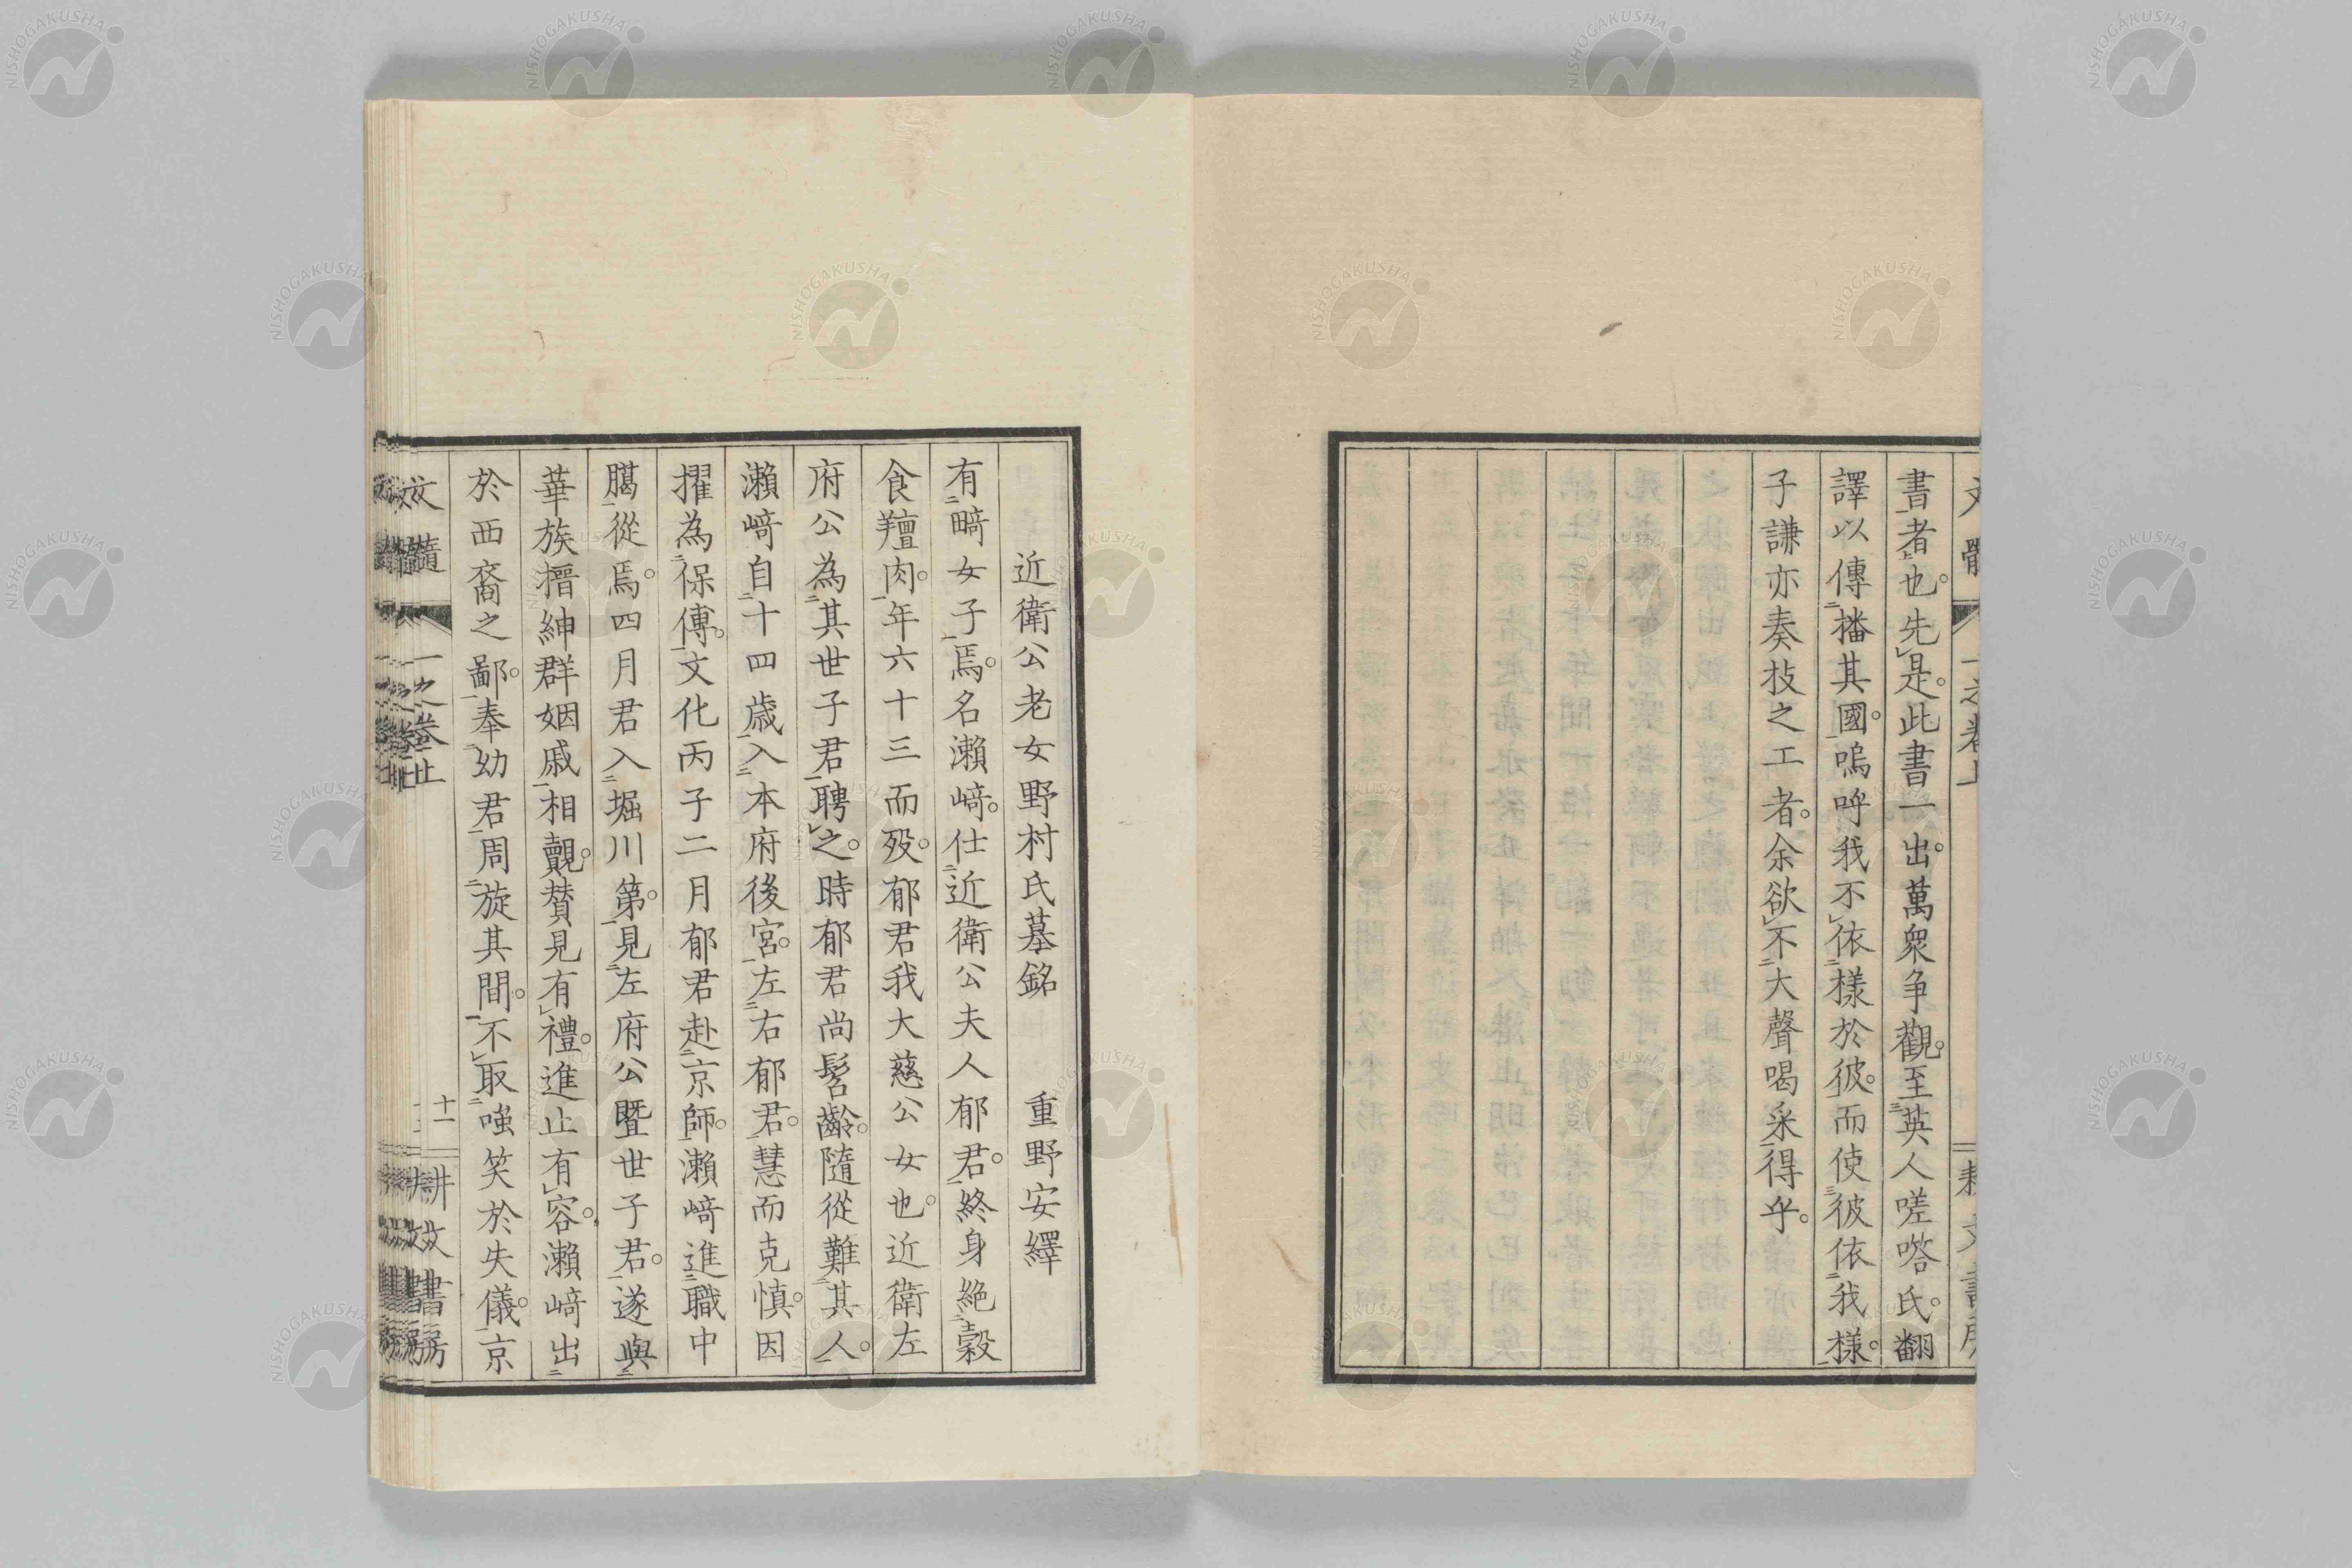 書者也。先是。此書一出。萬衆争觀。至英人嗟咨氏。翻
譯以傳播其國。嗚呼我不依樣於彼。而使彼依我樣。
子謙亦奏技之工者。余欲不大聲喝采得乎。
近衛公老女野村氏墓銘 重野安繹
有畸女子焉。名瀨﨑。仕近衛公夫人郁君。終身絶穀
食羶肉。年六十三而歿。郁君我大慈公女也。近衛左
府公為其世子君聘之。時郁君尚髫齡。隨從難其人。
瀨﨑自十四歳入本府後宮。左右郁君。慧而克慎。因
擢為保傅。文化丙子二月郁君赴京師。瀨﨑進職中
﨟從焉。四月君入堀川第。見左府公暨世子君。遂與
華族搢紳群姻戚相覿。贊見有禮。進止有容。瀨﨑出
於西裔之鄙。奉幼君周旋其間。不取嗤笑於失儀。京
文髓 一之卷上 十一 耕文書房
NISHOGAKUSHA